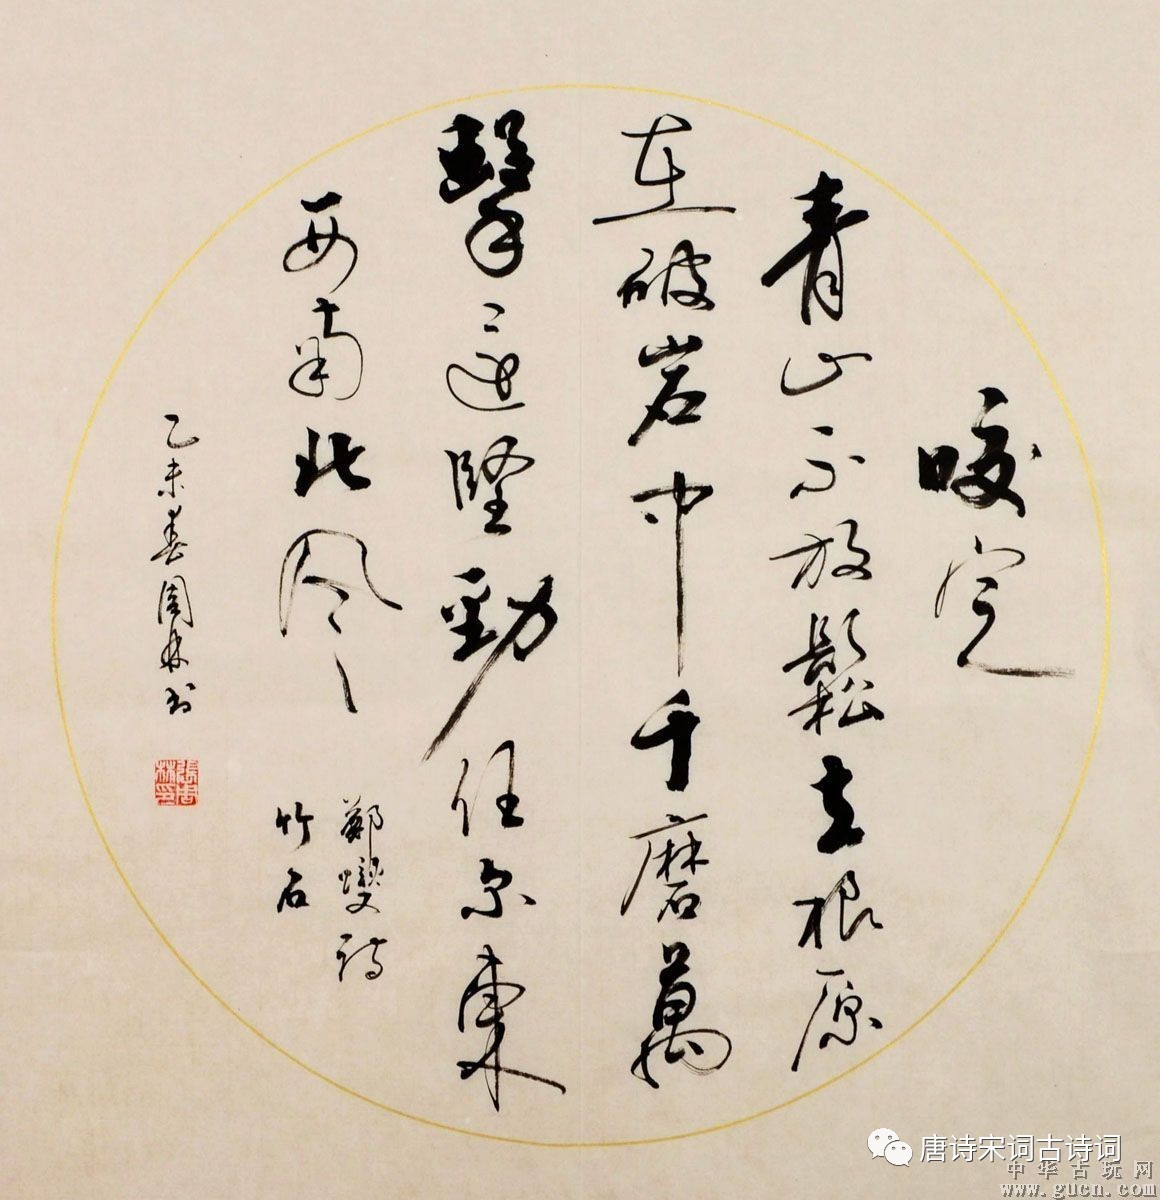 咬定
青山不放鬆立根原
在破岩中千磨萬
擊還堅勁任尔東
西南北风
鄭燮詩
竹石
乙未春周林书
張周林印
唐诗宋词古诗词
中华古玩网
www.gucn.com